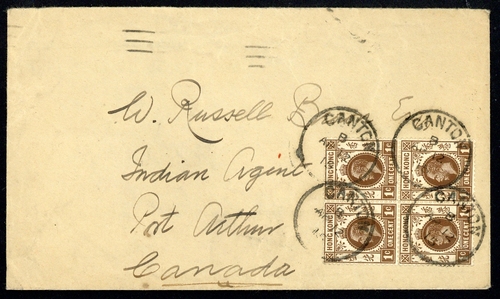 W. Russell B E
Indian Agent
Port Arthur
Canada
CANTON CANTON
B B
HONG KONG 1c HONG KONG 1c
ONE CENT ONE CENT
CANTON CANTON
HONG KONG 1c HONG KONG 1c
ONE CENT ONE CENT